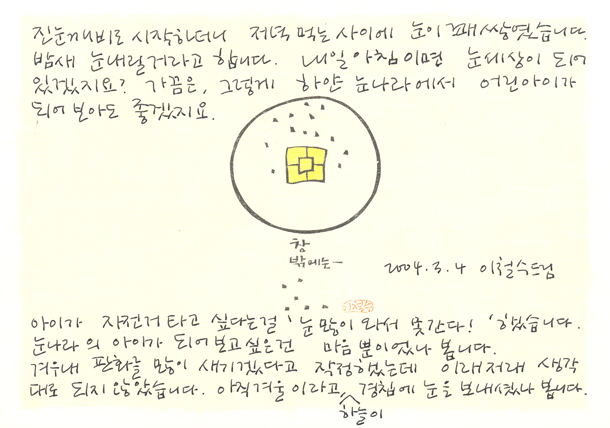 진눈깨비로 시작하더니 저녁 먹는 사이에 눈이 꽤 쌓였습니다.
밤새 눈내릴거라고 합니다. 내일 아침이면 눈세상이 되어
있겠지요? 가끔은, 그렇게 하얀 눈나라에서 어린아이가
되어 보아도 좋겠지요.
창
밖에는ㅡ
2004.3.4 이철수드림
아이가 자전거 타고 싶다는걸 '눈 많이 와서 못간다!' 했습니다.
눈나라의 아이가 되어보고 싶은건 마음 뿐이었나 봅니다.
겨우내 판화를 많이 새기겠다고 작정했는데 이래저래 생각
대로 되지 않았습니다. 아직 겨울이라고, 경칩에 눈을 보내셨나 봅니다.
하늘이